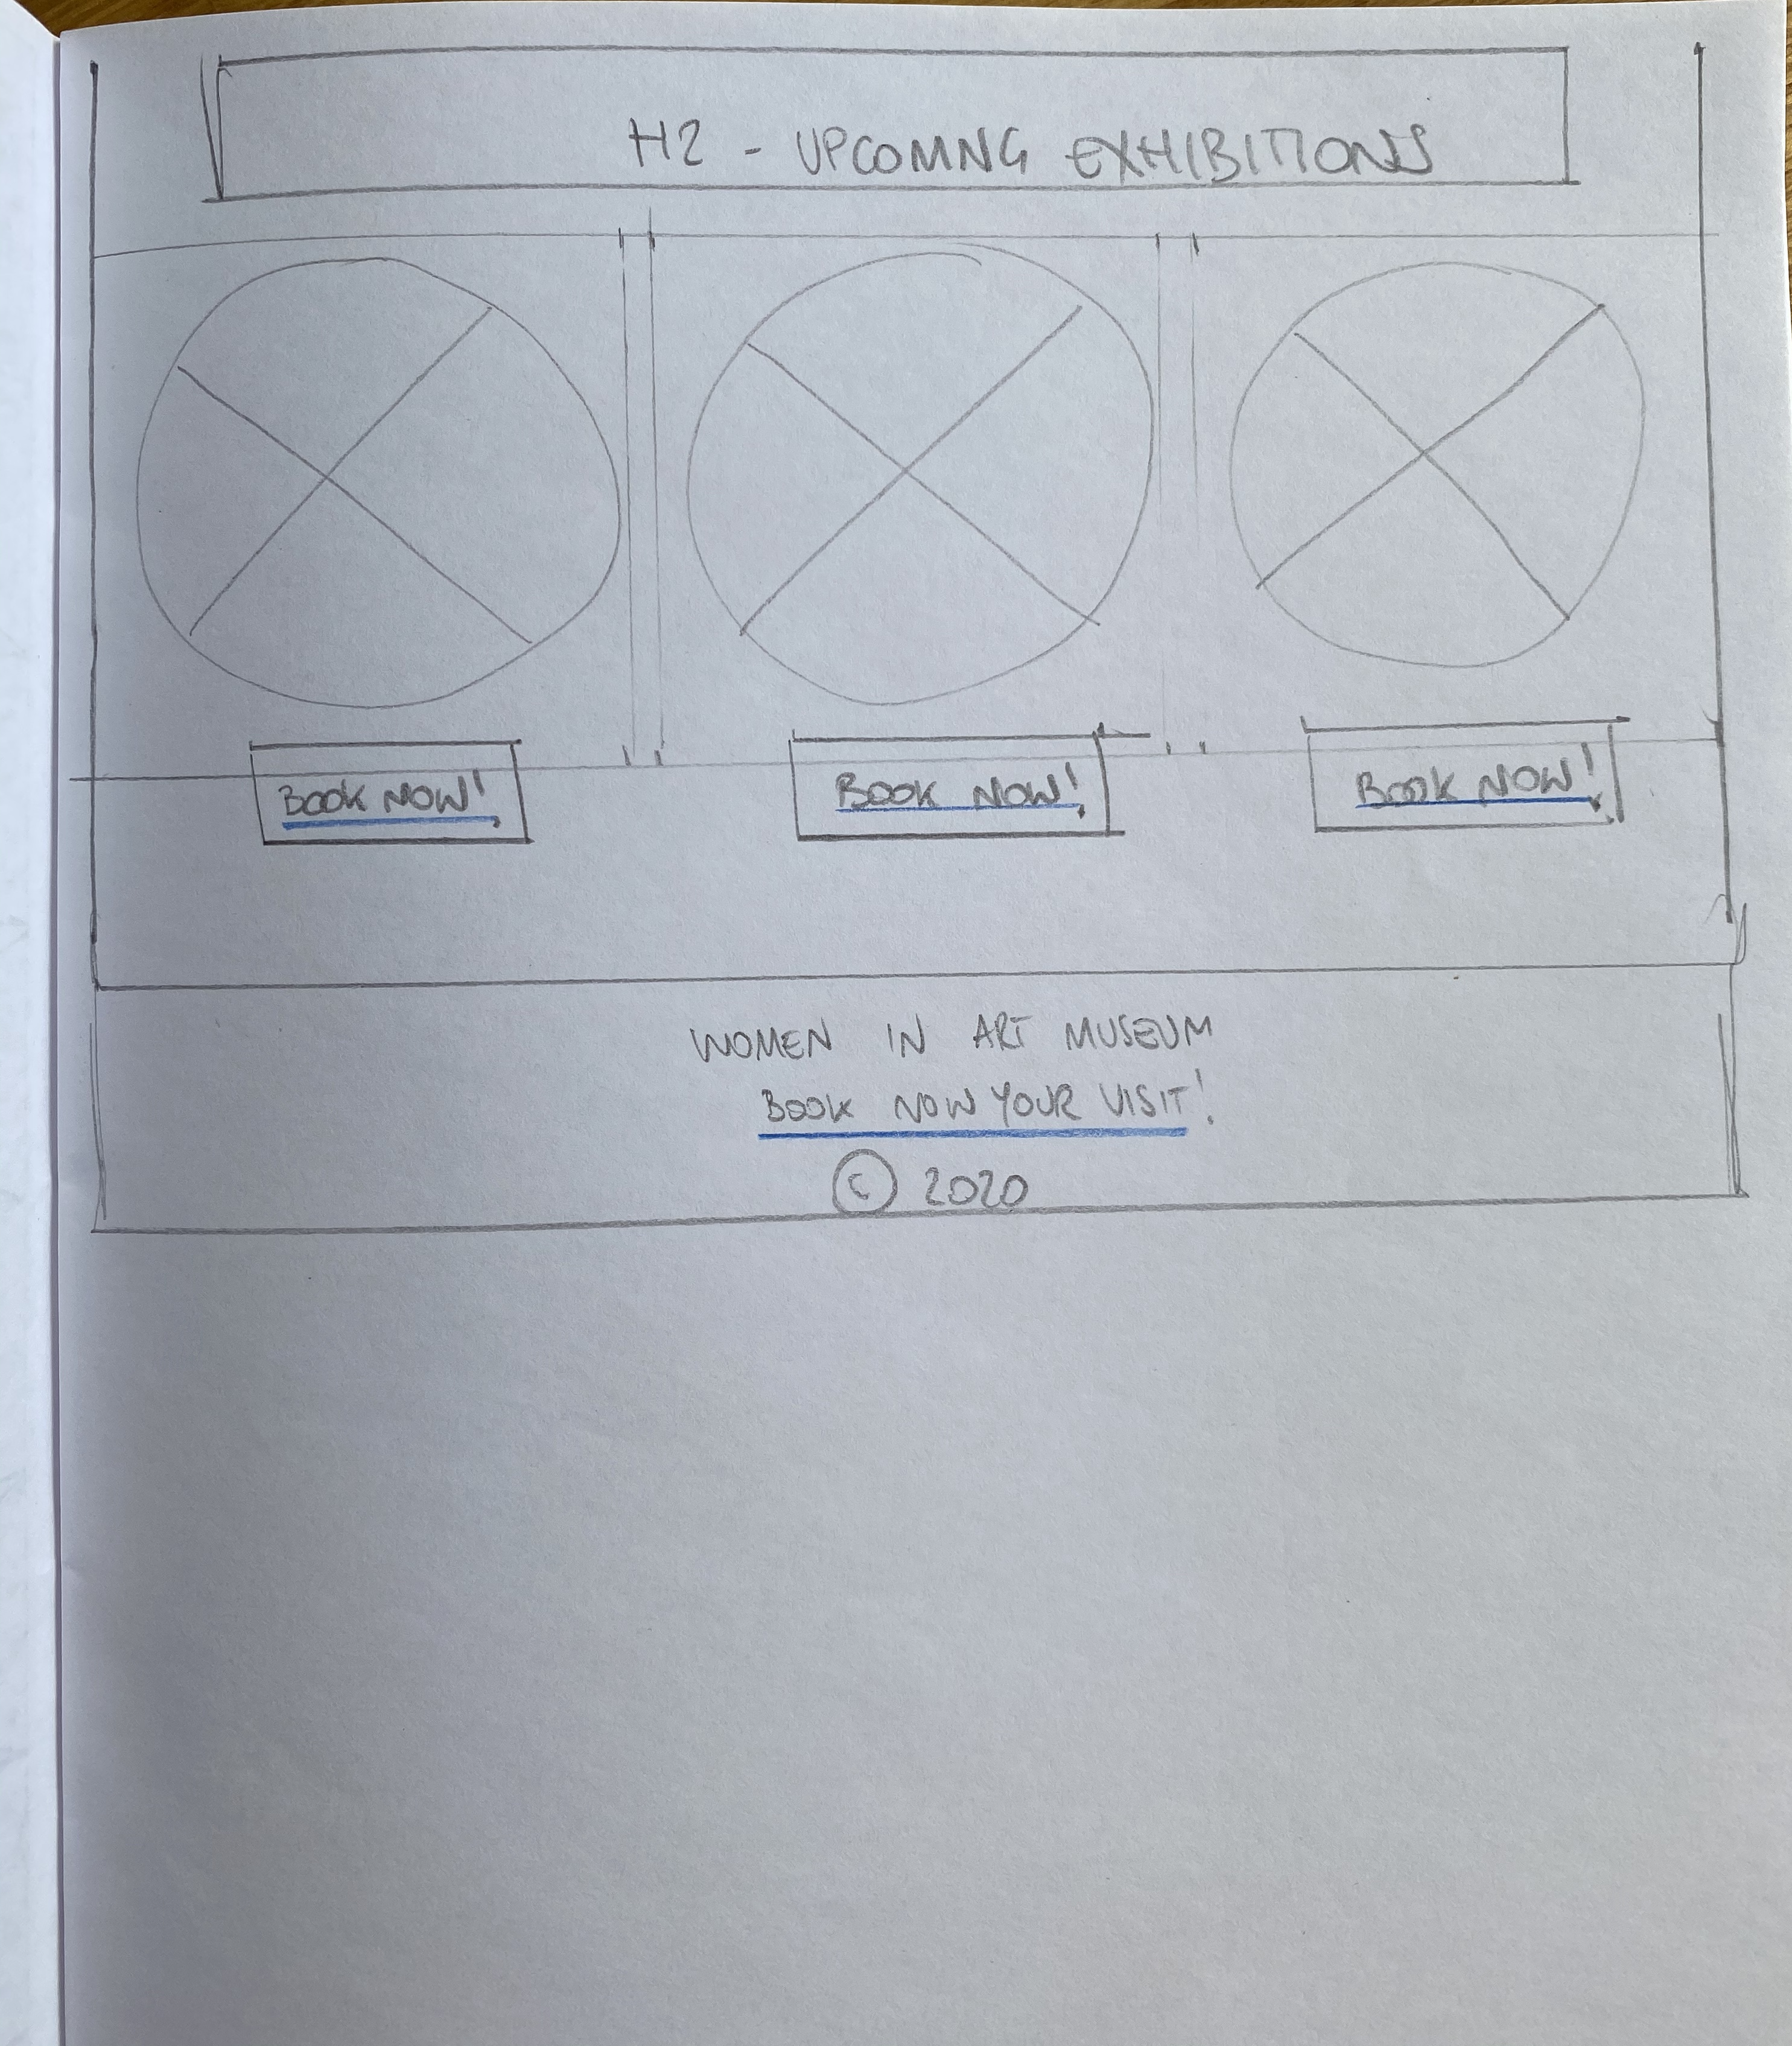 H2 - UPCOMNG EXHIBITIONS
BOOK NOW! BOOK NOW! BOOK NOW!
WOMEN IN ART MUSEUM
BOOK NOW YOUR VISIT!
© 2020